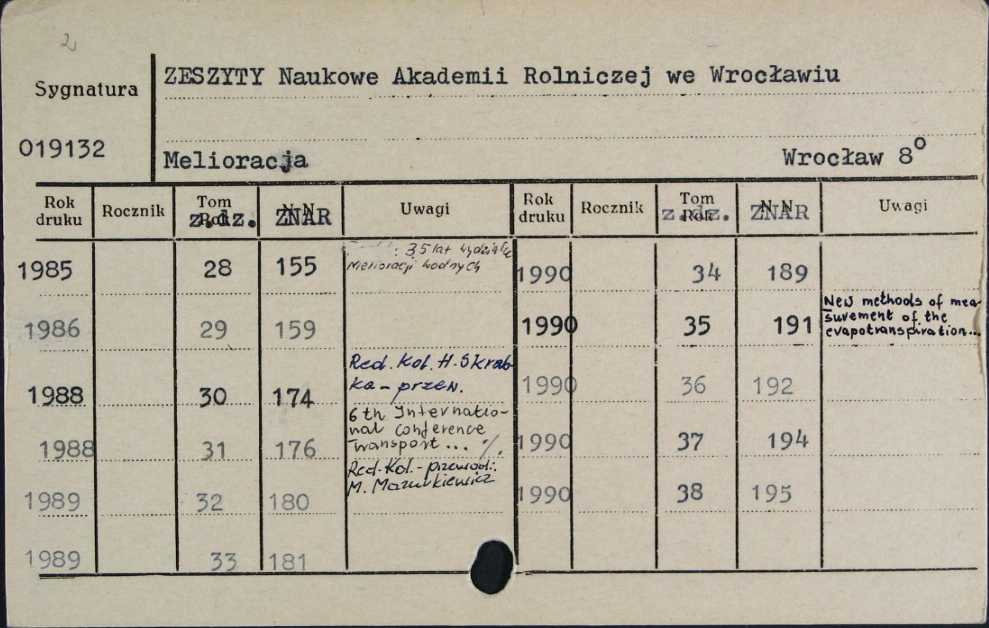 2
Sygnatura
ZESZYTY Naukowe Akademii Rolniczej we Wrocławiu
019132
Melioracja
Wrocław 8°
Rok druku Rocznik Tom z.dz. N N ZNAR Uwagi Rok druku Rocznik Tom z.dz. N N ZNAR Uwagi
1985 28 155 35 lat
Melioracji Wodnych
1986 29 159
1988 30 174 Red. Kol. H. Skrab-
ka - przew.
1988 31 176 6th Internatio-
nal conference
Transport... %.
1989 32 180 Red. Kol. - przewodn.:
M. Mazurkiewicz
1989 33 181
1990 34 189
1990 35 191 New methods of mea-
surement of the
evapotranspiration...
1990 36 192
1990 37 194
1990 38 195